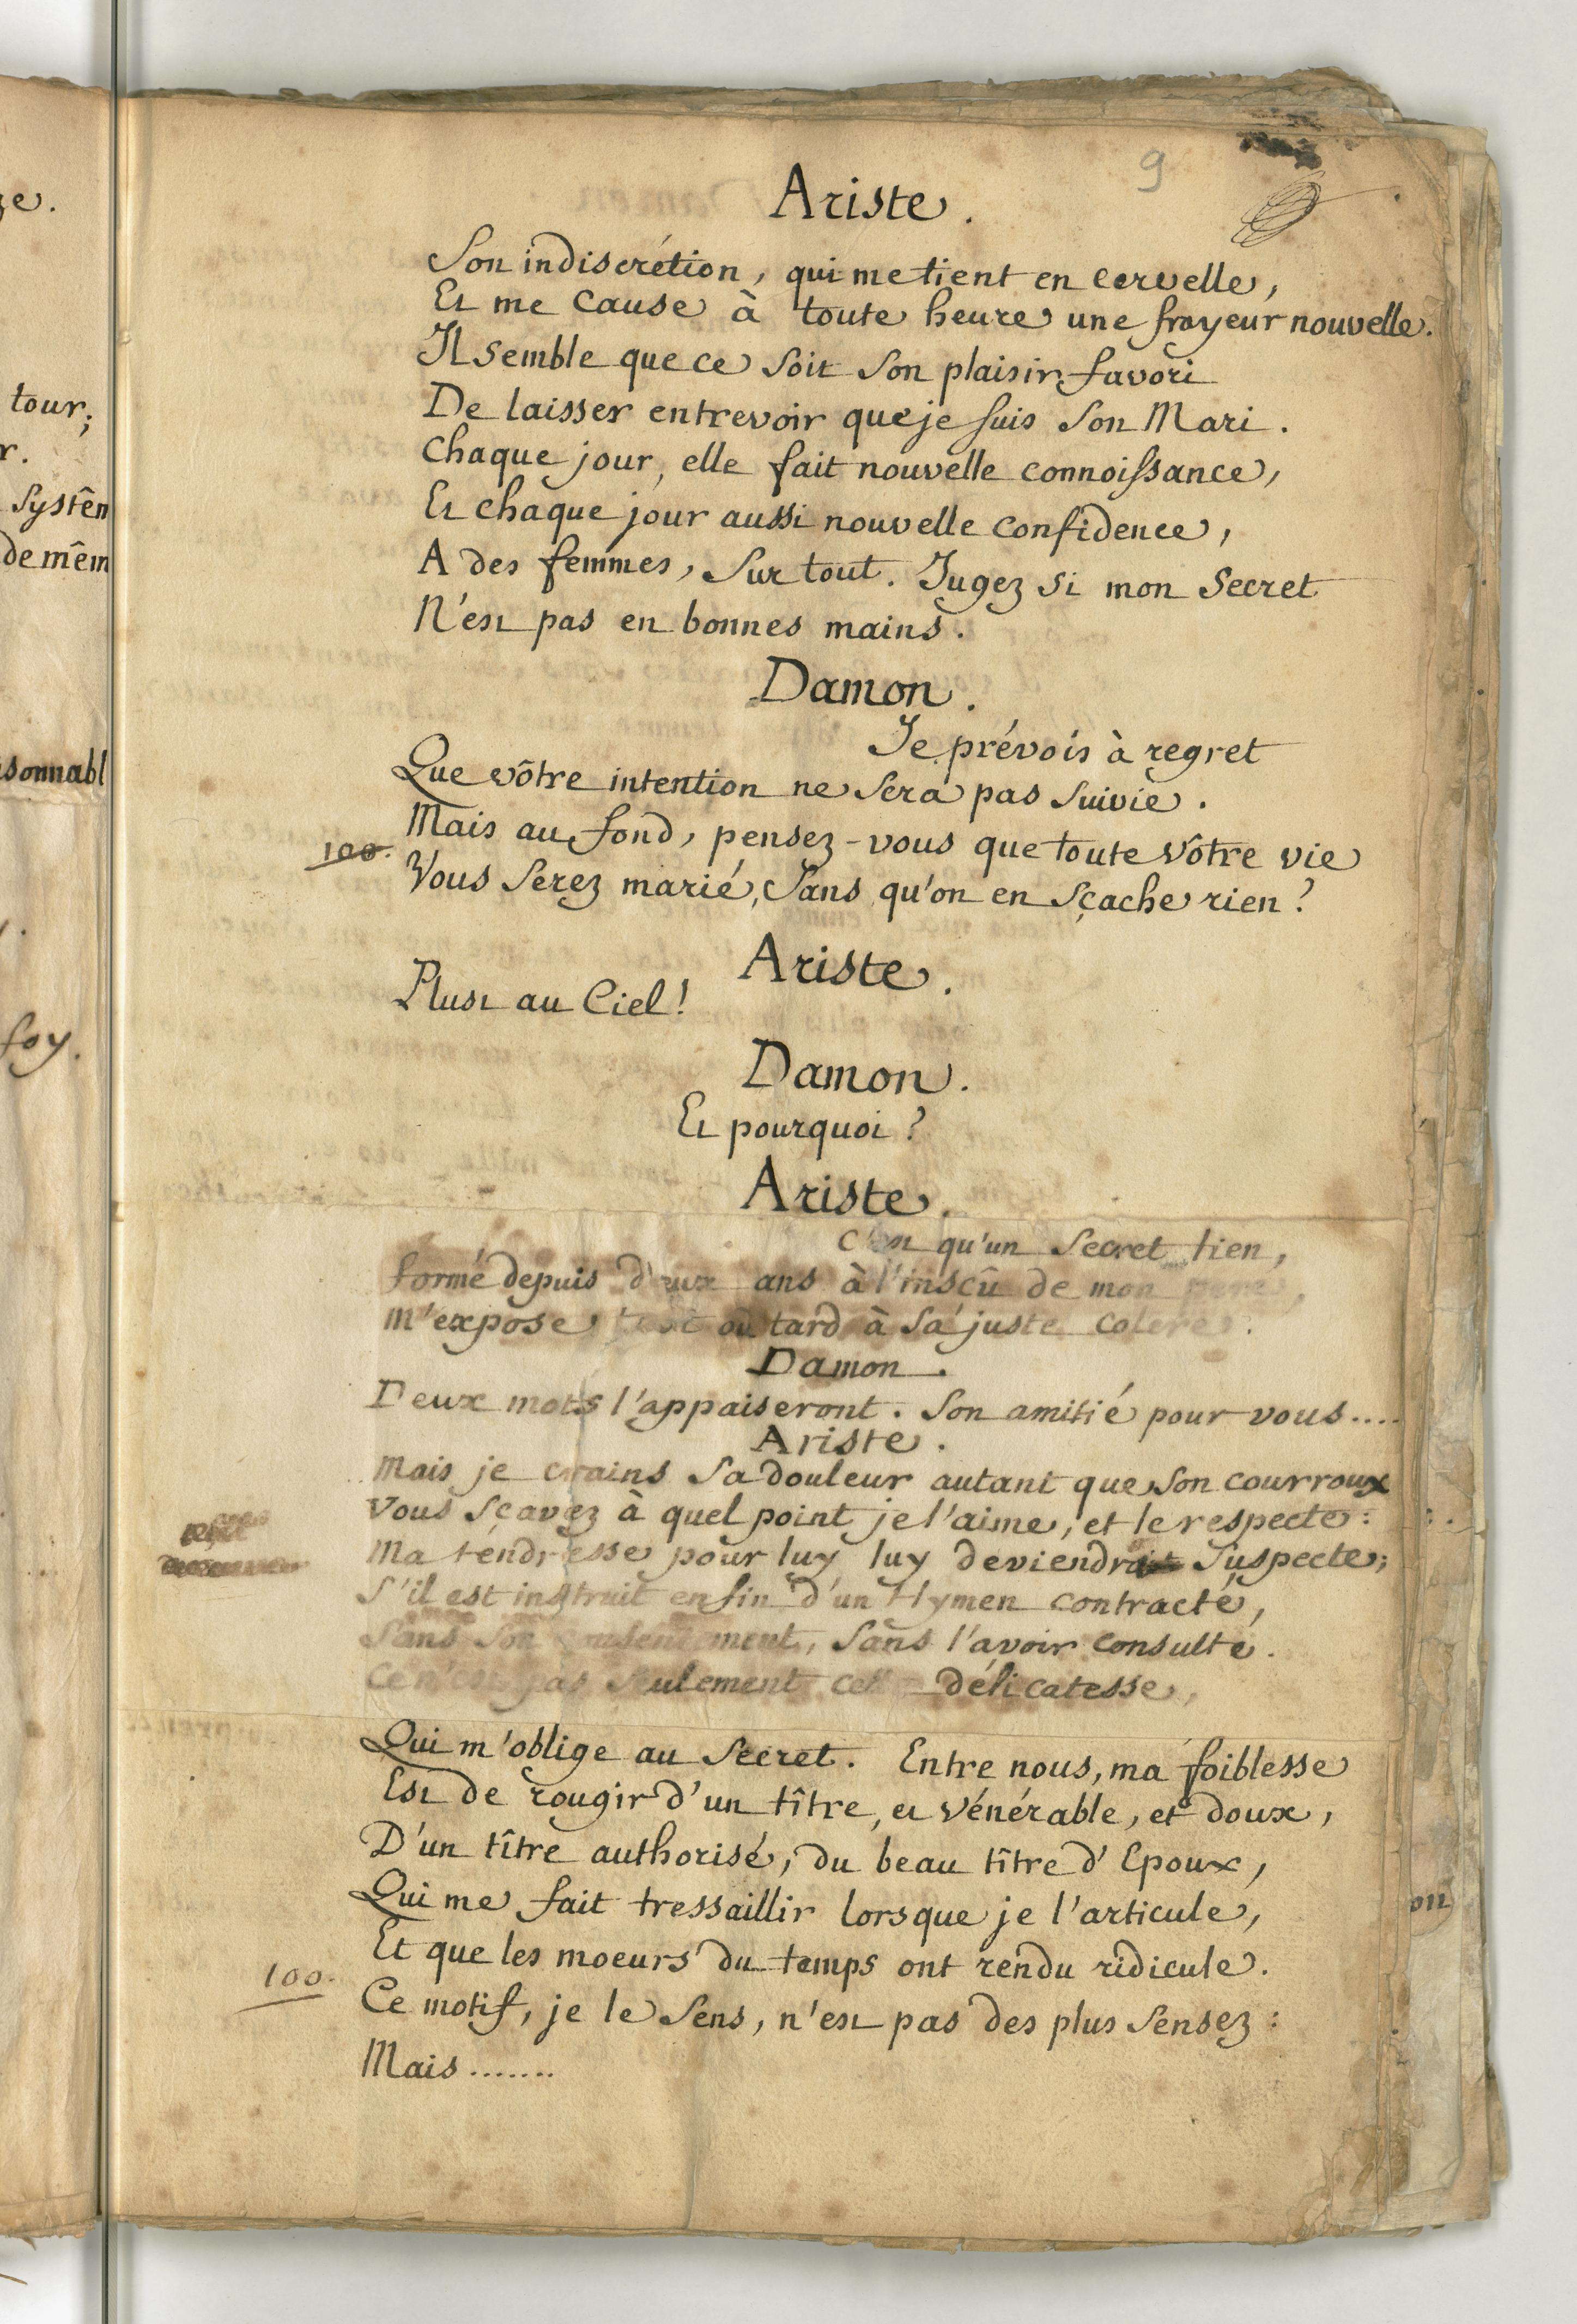 9
Ariste.
Son indiscrétion, qui me tient en cervelle,
Et me cause à toute heure une frayeur nouvelle.
Il semble que ce soit son plaisir favori
De laisser entrevoir que je suis son Mari.
Chaque jour, elle fait nouvelle connoissance,
Et chaque jour aussi nouvelle confidence,
A des femmes, sur tout. Jugez si mon secret
N'est pas en bonnes mains.
Damon.
Je prévois à regret
Que vôtre intention ne sera pas suivie.
Mais au fond, pensez-vous que toute vôtre vie
100. Vous serez marié, sans qu'on en sçache rien?
Ariste.
Plust au Ciel!
Damon.
Et pourquoi?
Ariste.
C'est qu'un secret lien,
formé depuis deux ans à l'insçû de mon pere,
m'expose tost ou tard à sa juste colere.
Damon.
Deux mots l'appaiseront. Son amitié pour vous....
Ariste.
Mais je crains sa douleur autant que son courroux
Vous sçavez à quel point je l'aime, et le respecte:
Ma tendresse pour luy luy deviendrait suspecte;
S'il est instruit enfin d'un Hymen contracté,
Sans son consentement, sans l'avoir consulté.
Ce n'est pas seulement cette délicatesse,
Qui m'oblige au secret. Entre nous, ma foiblesse
Est de rougir d'un tître, et vénérable, et doux,
D'un tître authorisé, du beau tître d'Epoux,
Qui me fait tressaillir lorsque je l'articule,
Et que les moeurs du temps ont rendu ridicule.
100. Ce motif, je le sens, n'est pas des plus sensez:
Mais.......
ze.
tour;
r.
Systên
de mêm
sonnabl
foy.
on